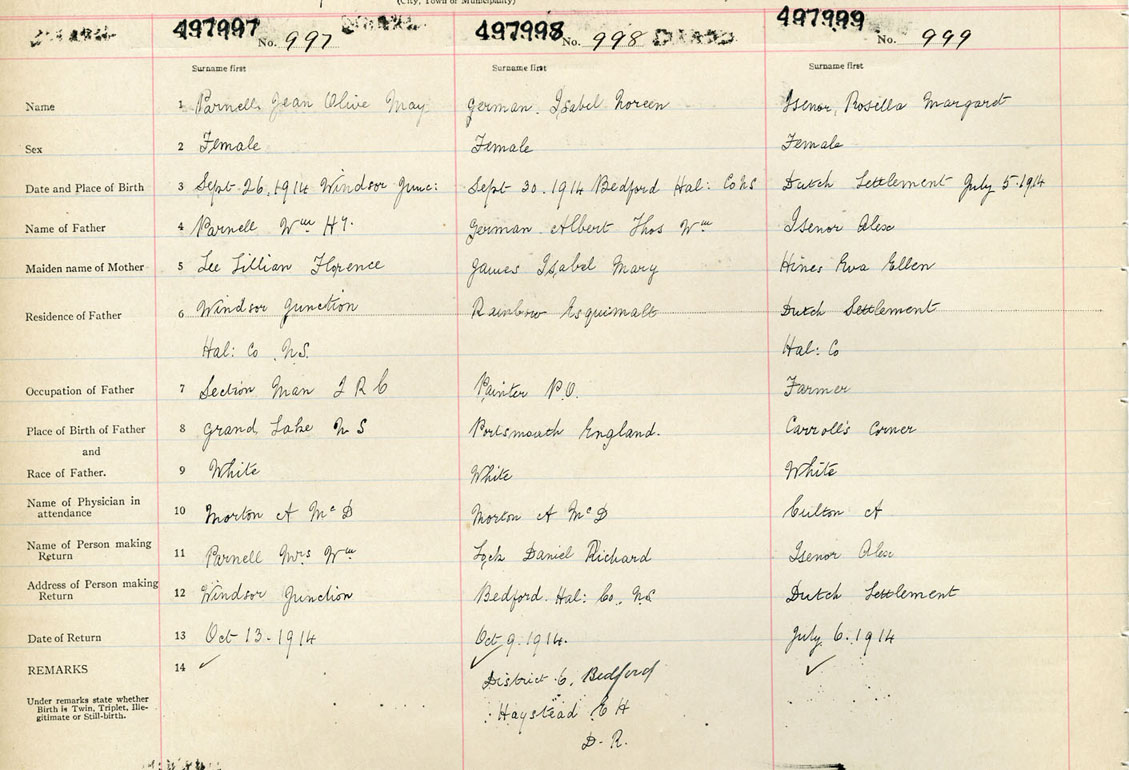 (City, Town or Municipality)
497997 No. 997 497998 No. 998 497999 No. 999
Surname first Surname first Surname first
Name 1 Parnell, Jean Olive May German, Isabel Noreen Isenor, Rosella Margaret
Sex 2 Female Female Female
Date and Place of Birth 3 Sept. 26. 1914 Windsor Junc: Sept 30. 1914 Bedford Hal: Co NS Dutch Settlement July 5. 1914
Name of Father 4 Parnell Wm Hy. German Albert Thos Wm Isenor Alex
Maiden name of Mother 5 Lee Lillian Florence James Isabel Mary Hines Eva Ellen
Residence of Father 6 Windsor Junction Rainbow Esquimalt Dutch Settlement
Hal: Co N.S. Hal: Co
Occupation of Father 7 Section Man I R C Painter P.O. Farmer
Place of Birth of Father 8 Grand Lake N S Portsmouth England. Carroll's Corner
and
Race of Father. 9 White White White
Name of Physician in
attendance 10 Morton A McD Morton A McD A
Name of Person making
Return 11 Parnell Mrs Wm Daniel Richard Isenor Alex
Address of Person making
Return 12 Windsor Junction Bedford. Hal: Co. N.S. Dutch Settlement
Date of Return 13 Oct 13. 1914 Oct 9. 1914. July 6. 1914
REMARKS 14 ✓ ✓ District 6, Bedford ✓
Under remarks state whether
Birth is Twin, Triplet, Ille-
gitimate or Still-birth.
Haystead E H
D. R.